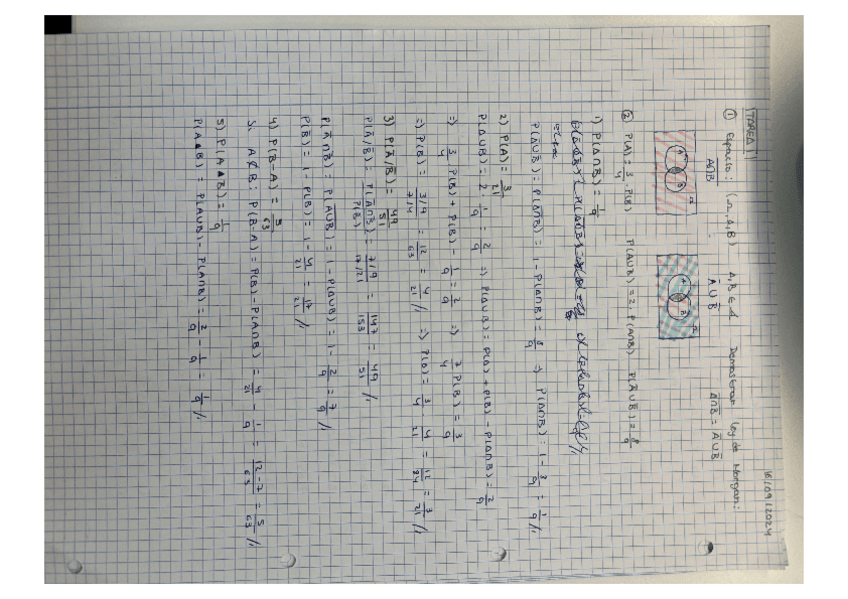 18/09/2024
TAREA 1
① Espacio: (Ω, A, B) A, B ∈ A Demostrar ley de Morgan:
A̅∩̅B̅ A̅ ∪ B̅ A̅∩̅B̅ = A̅ ∪ B̅
② P(A) = 3/4 · P(B) P(A∪B) = 2 · P(A∩B) P(A̅∪B̅) = 8/9
1) P(A∩B) = 1/9
P(A̅∪B̅) = P(A̅∩̅B̅) = 1 - P(A∩B) = 8/9 ⇒ P(A∩B) = 1 - 8/9 = 1/9 //
2) P(A) = 3/21
P(A∪B) = 2 · 1/9 = 2/9 ⇒ P(A∪B) = P(A) + P(B) - P(A∩B) = 2/9
⇒ 3/4 P(B) + P(B) - 1/9 = 2/9 ⇒ 7/4 P(B) = 3/9
⇒ P(B) = 3/9 / 7/4 = 12/63 = 4/21 // ⇒ P(A) = 3/4 · 4/21 = 12/84 = 3/21 //
3) P(A̅/B̅) = 49/51
P(A̅/B̅) = P(A̅∩B̅)/P(B̅) = 7/9 / 17/21 = 147/153 = 49/51 //
P(A̅∩B̅) = P(A̅∪̅B̅) = 1 - P(A∪B) = 1 - 2/9 = 7/9 //
P(B̅) = 1 - P(B) = 1 - 4/21 = 17/21 //
4) P(B-A) = 5/63
Si A⊄B: P(B-A) = P(B) - P(A∩B) = 4/21 - 1/9 = 12-7/63 = 5/63 //
5) P(A▲B) = 1/9
P(A▲B) = P(A∪B) - P(A∩B) = 2/9 - 1/9 = 1/9 //